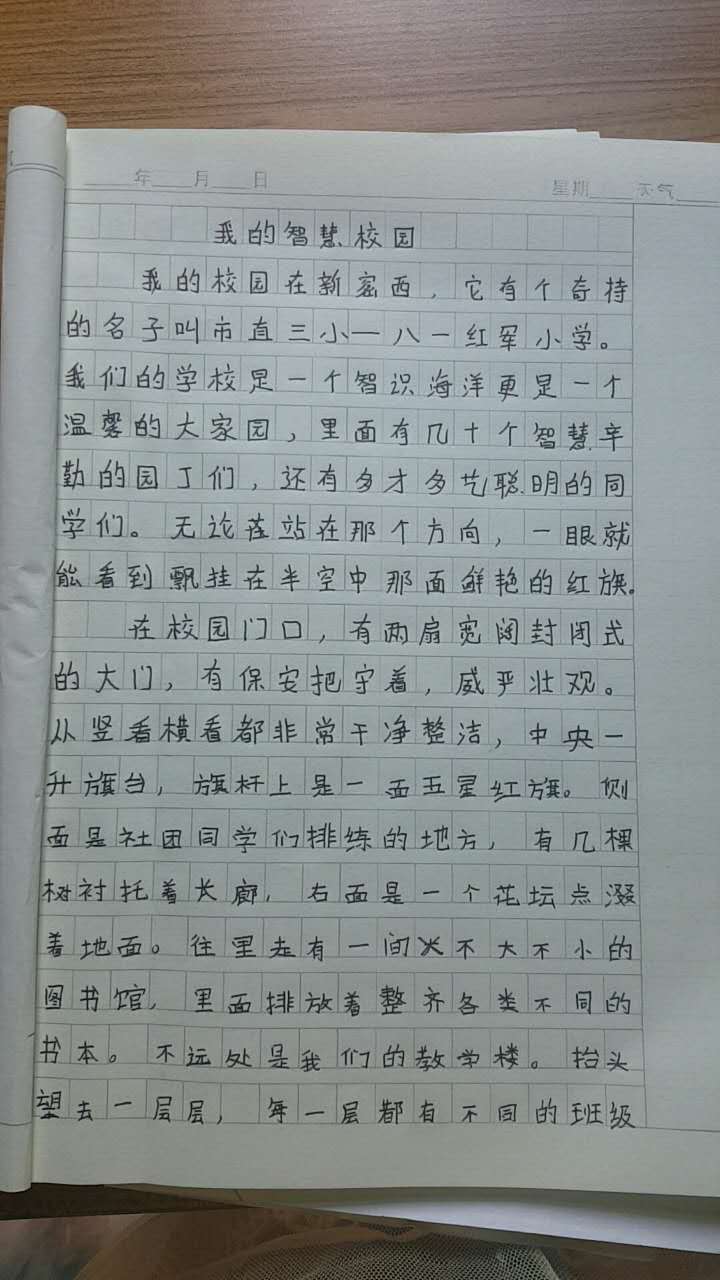 年 月 日 星期 天气
我的智慧校园
我的校园在新密西，它有个奇持
的名子叫市直三小一八一红军小学。
我们的学校是一个智识海洋更是一个
温馨的大家园，里面有几十个智慧辛
勤的园丁们，还有多才多艺聪明的同
学们。无论站在那个方向，一眼就
能看到飘挂在半空中那面鲜艳的红旗。
在校园门口，有两扇宽阔封闭式
的大门，有保安把守着，威严壮观。
从竖看横看都非常干净整洁，中央一
升旗台，旗杆上是一面五星红旗。侧
面是社团同学们排练的地方，有几棵
树衬托着长廊，右面是一个花坛点缀
着地面。往里走有一间不大不小的
图书馆，里面排放着整齐各类不同的
书本。不远处是我们的教学楼。抬头
望去一层层，每一层都有不同的班级